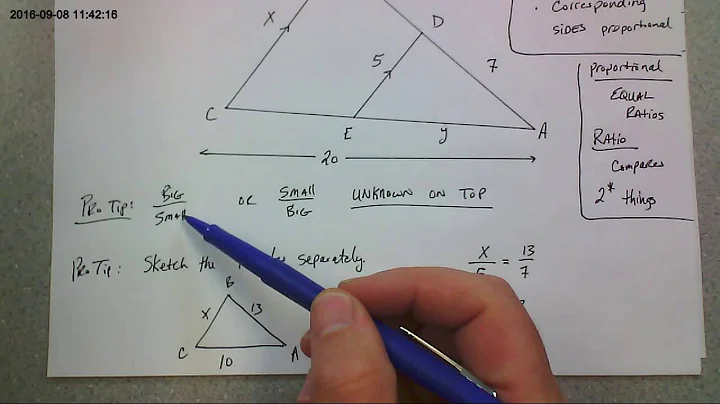 2016-09-08 11:42:16
• Corresponding
SIDES proportional
X
D
5
7
C
E
y
A
20
Proportional
EQUAL
RATIOS
RATIO
Compares
2* things
PRO TIP: BIG
SMALL
OR
SMALL
BIG
UNKNOWN ON TOP
PRO TIP: Sketch the separately.
X
=
13
7
B
X
13
C
A
10